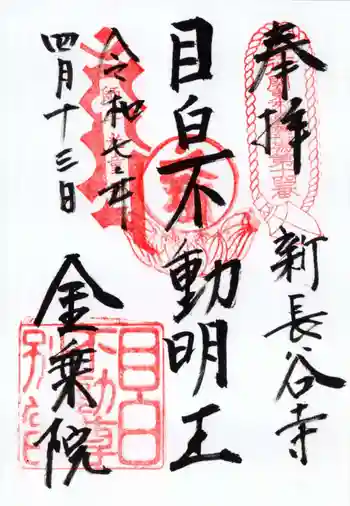 奉拝
新長谷寺
目白不動明王
令和七年
四月十三日
金乗院
目白
不動尊